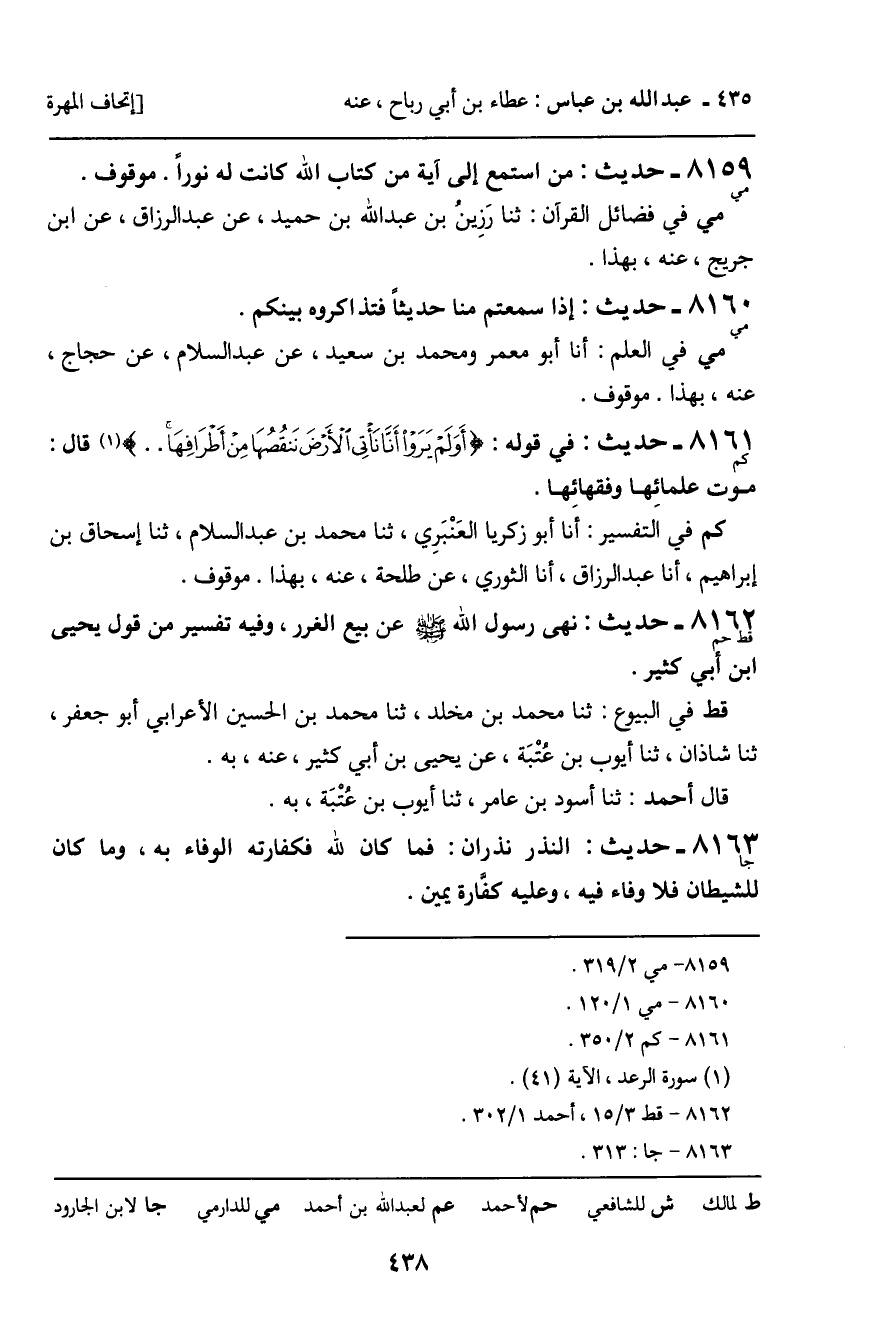 ٤٣٥ - عبدالله بن عباس : عطاء بن أبي رباح ، عنه [إتحاف المهرة
٨١٥٩ - حديث : من استمع إلى آية من كتاب الله كانت له نوراً . موقوف .
مي
مي في فضائل القرآن : ثنا رَزِينُ بن عبدالله بن حميد ، عن عبدالرزاق ، عن ابن
جريج ، عنه ، بهذا .
٨١٦٠ - حديث : إذا سمعتم منا حديثاً فتذاكروه بينكم .
مي
مي في العلم : أنا أبو معمر ومحمد بن سعيد ، عن عبدالسلام ، عن حجاج ،
عنه ، بهذا . موقوف .
٨١٦١ - حديث : في قوله : ﴿أَوَلَمْ يَرَوْا۟ أَنَّا نَأْتِى ٱلْأَرْضَ نَنقُصُهَا مِنْ أَطْرَافِهَا ۚ . . ﴾(١) قال :
كم
موت علمائِها وفقهائِها .
كم في التفسير : أنا أبو زكريا العَنْبَرِي ، ثنا محمد بن عبدالسلام ، ثنا إسحاق بن
إبراهيم ، أنا عبدالرزاق ، أنا الثوري ، عن طلحة ، عنه ، بهذا . موقوف .
٨١٦٢ - حديث : نهى رسول الله ﷺ عن بيع الغرر ، وفيه تفسير من قول يحيى
قط حم
ابن أبي كثير .
قط في البيوع : ثنا محمد بن مخلد ، ثنا محمد بن الحسين الأعرابي أبو جعفر ،
ثنا شاذان ، ثنا أيوب بن عُتْبَة ، عن يحيى بن أبي كثير ، عنه ، به .
قال أحمد : ثنا أسود بن عامر ، ثنا أيوب بن عُتْبَة ، به .
٨١٦٣ - حديث : النذر نذران : فما كان لله فكفارته الوفاء به ، وما كان
جا
للشيطان فلا وفاء فيه ، وعليه كفَّارة يمين .
٨١٥٩- مي ٣١٩/٢ .
٨١٦٠ - مي ١٢٠/١ .
٨١٦١ - كم ٣٥٠/٢ .
(١) سورة الرعد ، الآية (٤١) .
٨١٦٢ - قط ١٥/٣ ، أحمد ٣٠٢/١ .
٨١٦٣ - جا : ٣١٣ .
ط لمالك ش للشافعي حم لأحمد عم لعبدالله بن أحمد مي للدارمي جا لابن الجارود
٤٣٨